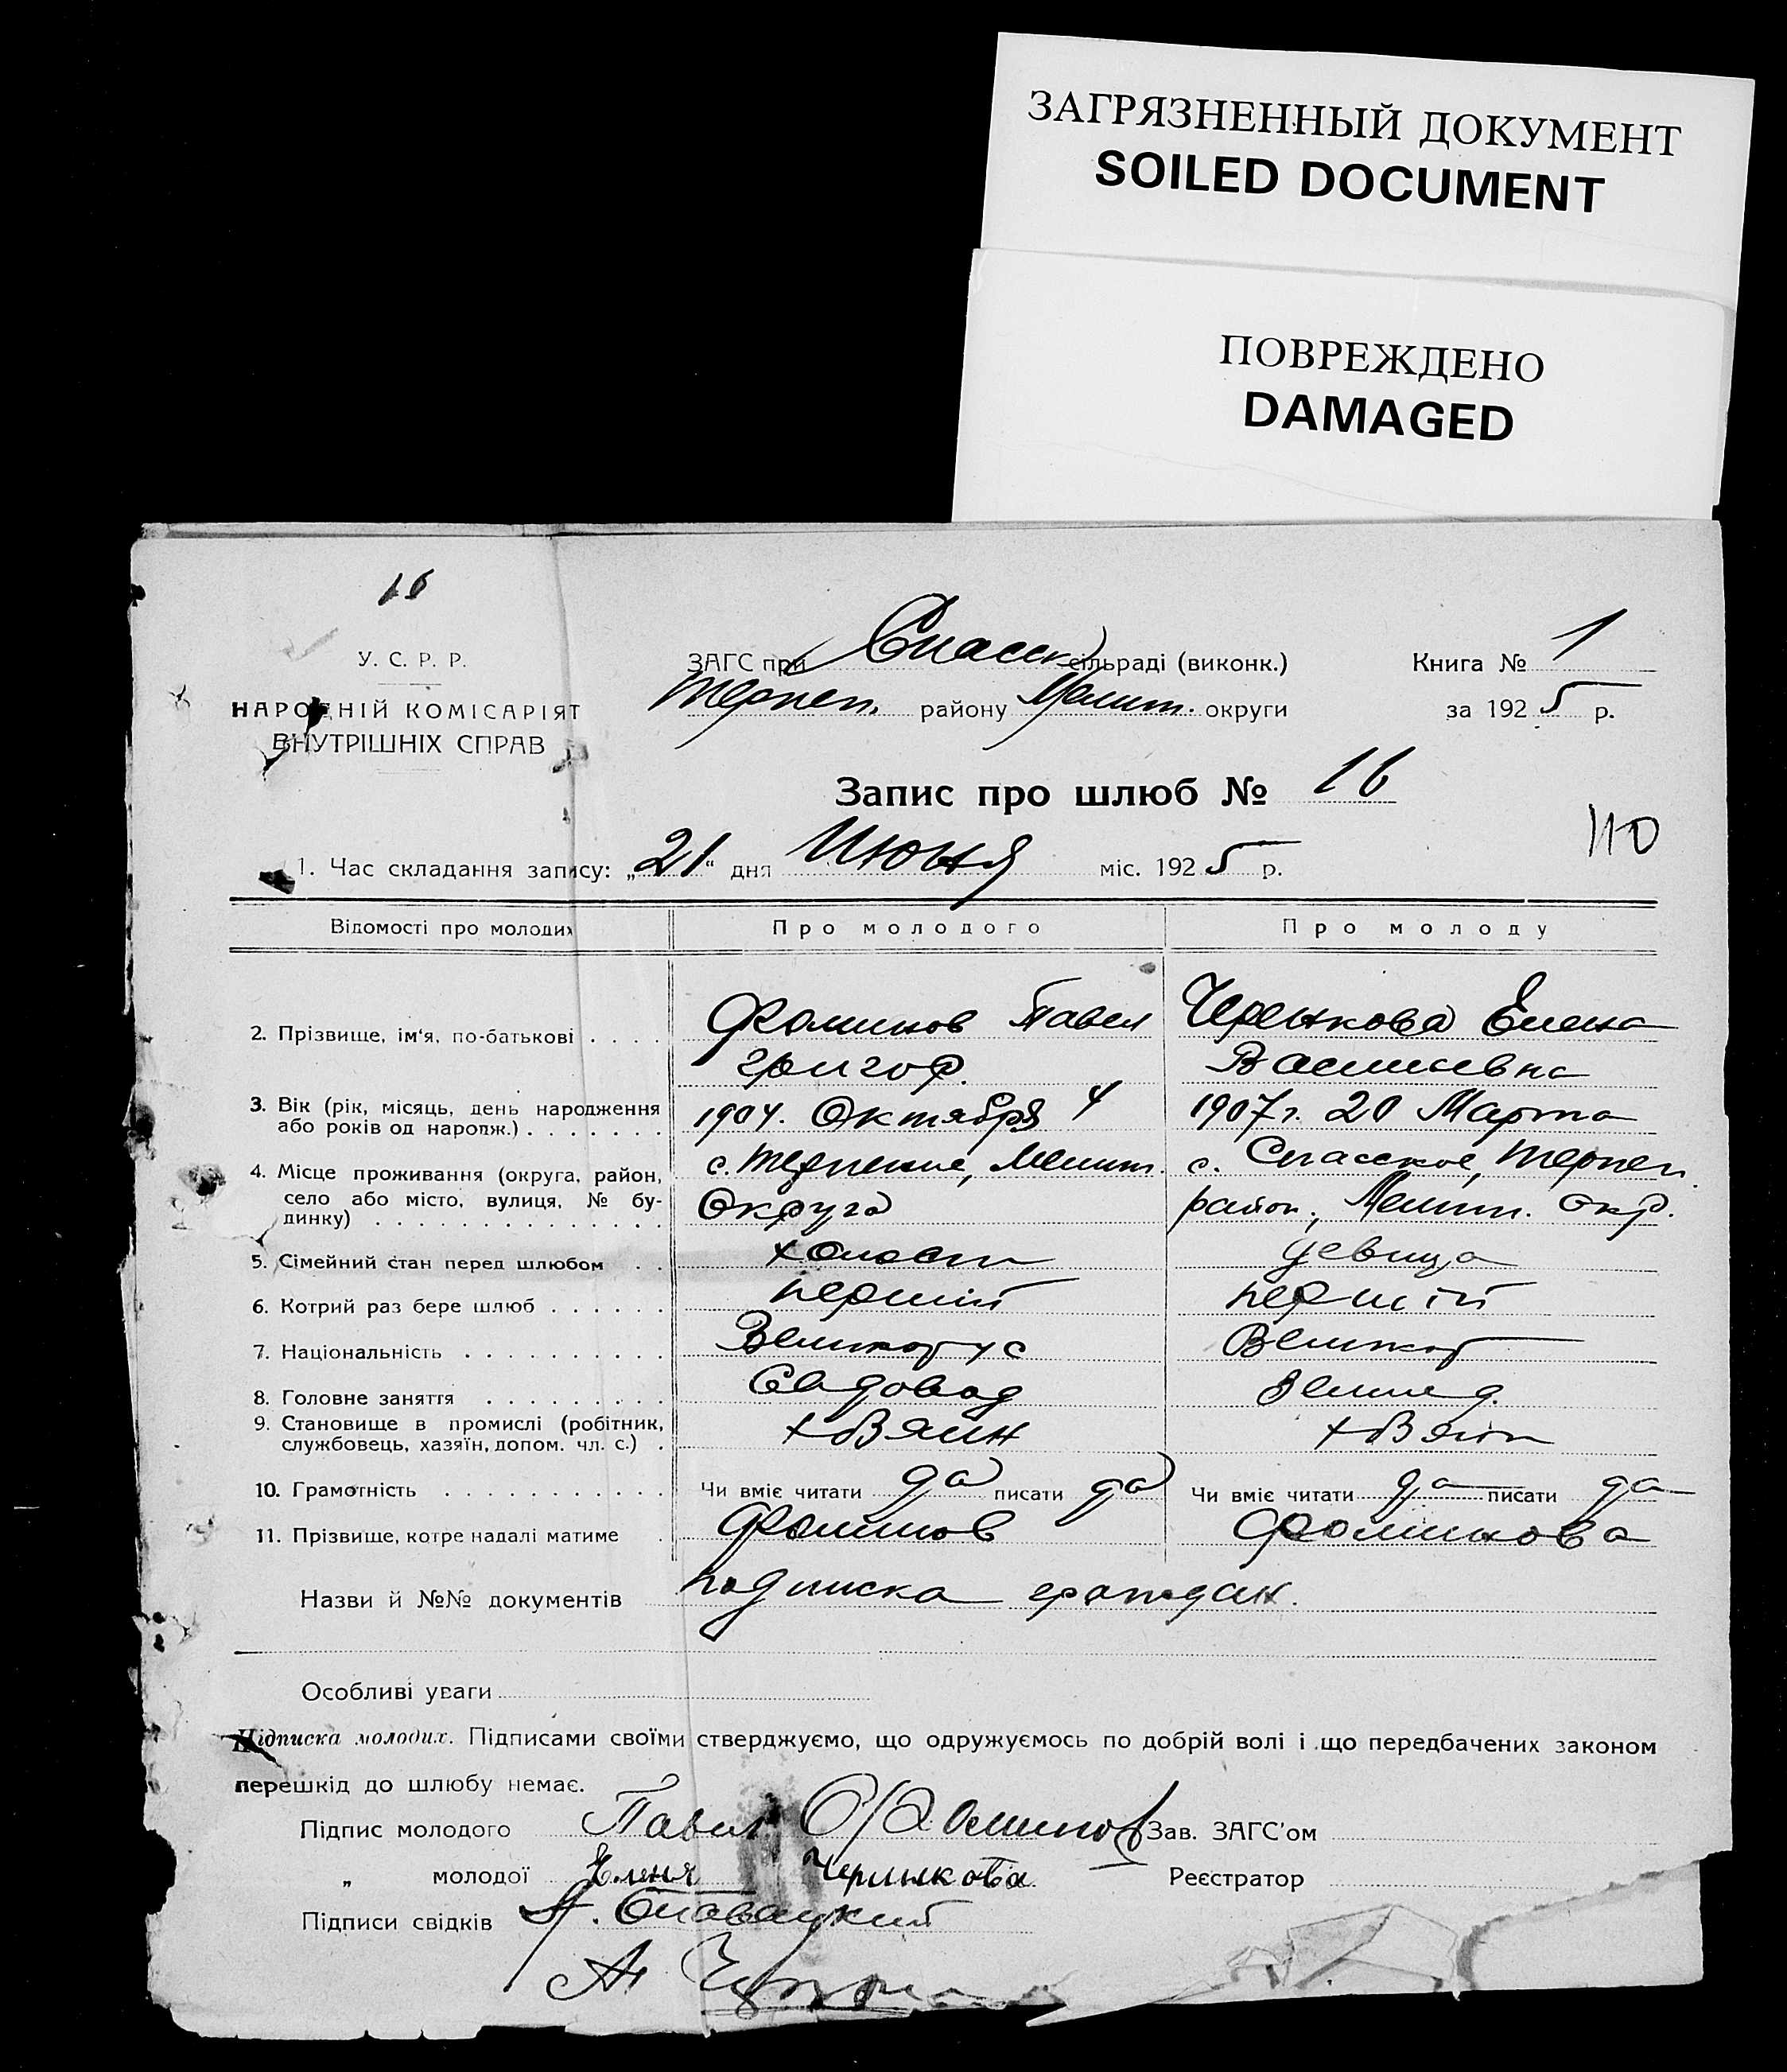 ЗАГРЯЗНЕННЫЙ ДОКУМЕНТ
SOILED DOCUMENT
ПОВРЕЖДЕНО
DAMAGED
16
У. С. Р. Р.
НАРОДНІЙ КОМІСАРІЯТ
ВНУТРІШНІХ СПРАВ
ЗАГС при Спасск сільраді (виконк.)
Терпен. району Мелит. округи
Книга № 1
за 1925 р.
Запис про шлюб № 16
110
1. Час складання запису: „21“ дня Июня міс. 1925 р.
Відомості про молодих
Про молодого
Про молоду
2. Прізвище, ім‘я, по-батькові
Фоминов Павел
Григор.
Черенкова Елена
Васильевна
3. Вік (рік, місяць, день народження
або років од народж.)
1904. Октября 4
1907 г. 20 Марта
4. Місце проживання (округа, район,
село або місто, вулиця, № бу-
динку)
с. Терпение, Мелит.
Округа
с. Спасское, Терпен.
район, Мелит. окр.
5. Сімейний стан перед шлюбом
холост
девица
6. Котрий раз бере шлюб
перший
перший
7. Національність
Великорус
Великор
8. Головне заняття
Садовод
Землед.
9. Становище в промислі (робітник,
службовець, хазяїн, допом. чл. с.)
хазяин
хазяин
10. Грамотність
Чи вміє читати да писати да
Чи вміє читати да писати да
11. Прізвище, котре надалі матиме
Фоминов
Фоминова
Назви й №№ документів подписка граждан.
Особливі уваги
Підписка молодих. Підписами своїми стверджуємо, що одружуємось по добрій волі і що передбачених законом
перешкід до шлюбу немає.
Підпис молодого Павел Фоминов
Зав. ЗАГС’ом
„ молодої Еленя Черынкова
Реєстратор
Підписи свідків